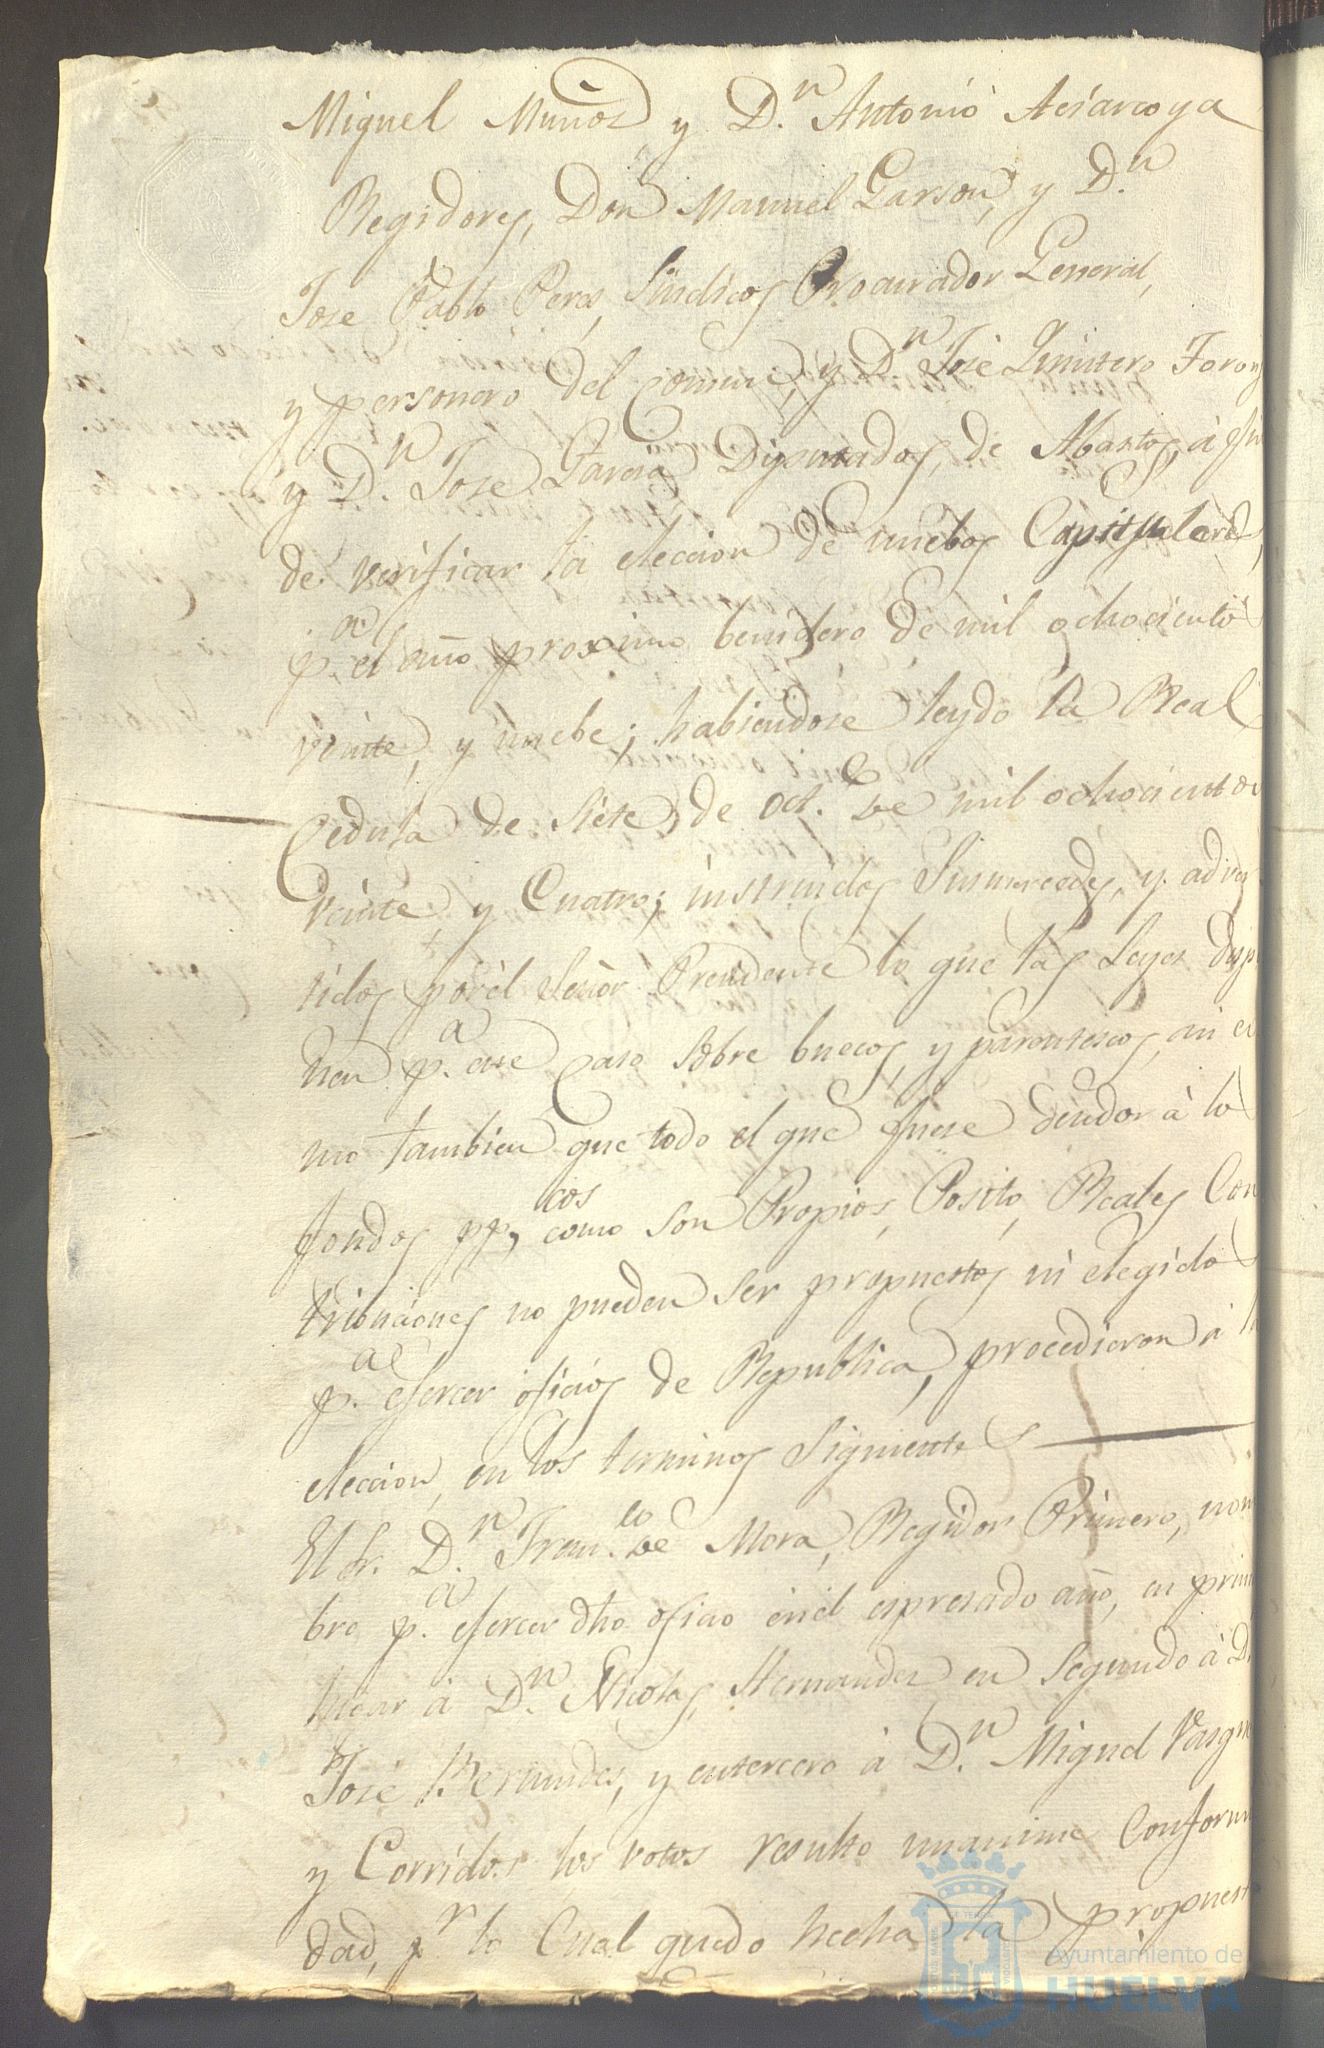 Miguel Muñoz y D.n Antonio Aciarcoya
Regidores, Don Manuel Garson, y D.n
Jose Pablo Peres, Sindicos Procurador General,
y personero del Comun, y D.n José Quintero Toron
y D.n Jose Garcia Diputados, de Abastos, à fin
de verificar la eleccion de nuebos Capitulares,
p.a el año proximo benidero de mil ochociento
veinte, y nuebe; habiendose leydo la Real
Cedula de Siete de Oct.e de mil ochocientos
veinte, y Cuatro; instruidos Sus mercedes, y adver
tidos por él Señor Presidente lo que las Leyes dispo
nen p.a ese Caso sobre huecos, y parentescos, ni co
mo tambien que todo el que fuese deudor à lo
fondos pp.cos como son Propios, Posito, Reales Con
tribuciones no pueden ser propuestos ni elegido
p.a esercer oficios de Republica, procedieron à la
eleccion, en los terminos Siguientes
El Sr. D.n Fran.co de Mora, Regidor Primero, nom
bro p.a esercer dho oficio enel espresado año, en prim
lugar à D.n Nicolas Hernandez en Segundo à D.n
José Hernandes, y entercero à D.n Miguel Vasque
y Corridos los votos resulto unanime Conformi
dad, p.r lo Cual quedo hecha la propuesta
Ayuntamiento de
HUELVA